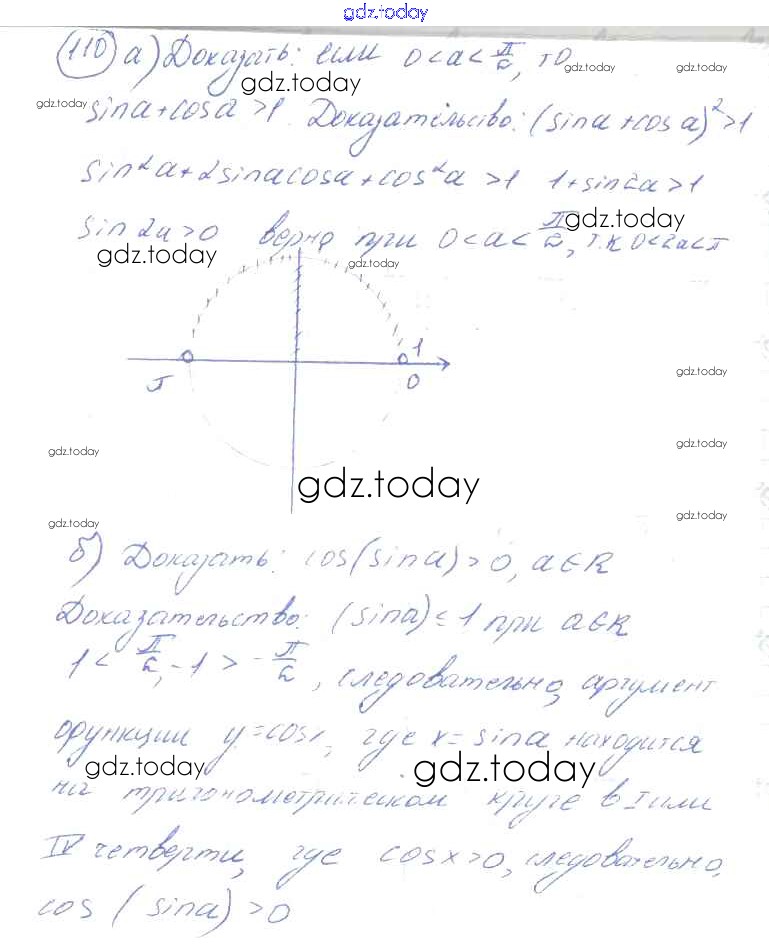 gdz.today
110 а) Доказать: если 0 < a < π/2, то
gdz.today gdz.today gdz.today
gdz.today
sin a + cos a > 1. Доказательство: (sin a + cos a)² > 1
sin² a + 2 sin a cos a + cos² a > 1 1 + sin 2a > 1
sin 2a > 0 верно при 0 < a < π/2, т.к 0 < 2a < π
gdz.today
gdz.today gdz.today
1
π 0
gdz.today
gdz.today gdz.today
gdz.today
gdz.today gdz.today
б) Доказать: cos (sin a) > 0, a ∈ R
Доказательство: (sin a) ≤ 1 при a ∈ R
1 < π/2, -1 > -π/2, следовательно, аргумент
функции y = cos x, где x = sin a находится
gdz.today gdz.today
на тригонометрическом круге в I или
IV четверти, где cos x > 0, следовательно,
cos (sin a) > 0